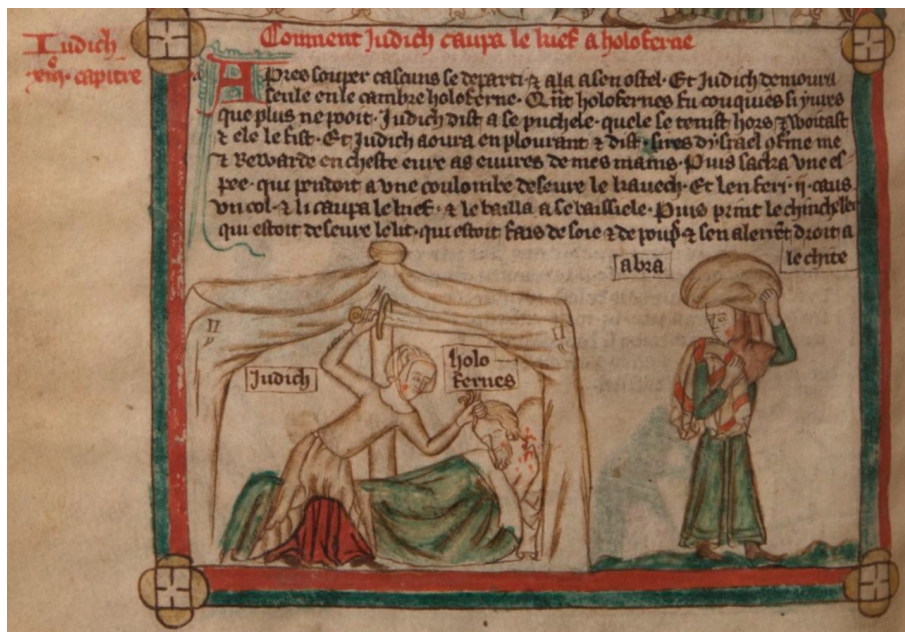 Iudich
xiij. capitre
Comment Judich caupa le kief a holoferne
Apres souper cascuns se departi ⁊ ala a sen ostel. Et Judich demoura
seule en le cambre holoferne. Qñt holofernes fu couquies si yures
que plus ne pooit. Judich dist a se puchele. quele se tenist hors ⁊ woitast
⁊ ele le fist. Et Judich aoura en plourant ⁊ dist. sires dysrael oferme me
⁊ Rewarde en cheste eure as euures de mes mains. Puis sacka vne es
pee. qui pendoit a vne coulombe deseure le kauech. Et len feri .ij. caus
u col. ⁊ li caupa le kief. ⁊ le bailla a se baissiele. Puis print le chincheler
qui estoit deseure le lit. qui estoit fais de soie ⁊ de ⁊ sen alerent droit a
abra
le chite
Judich
holo
fernes